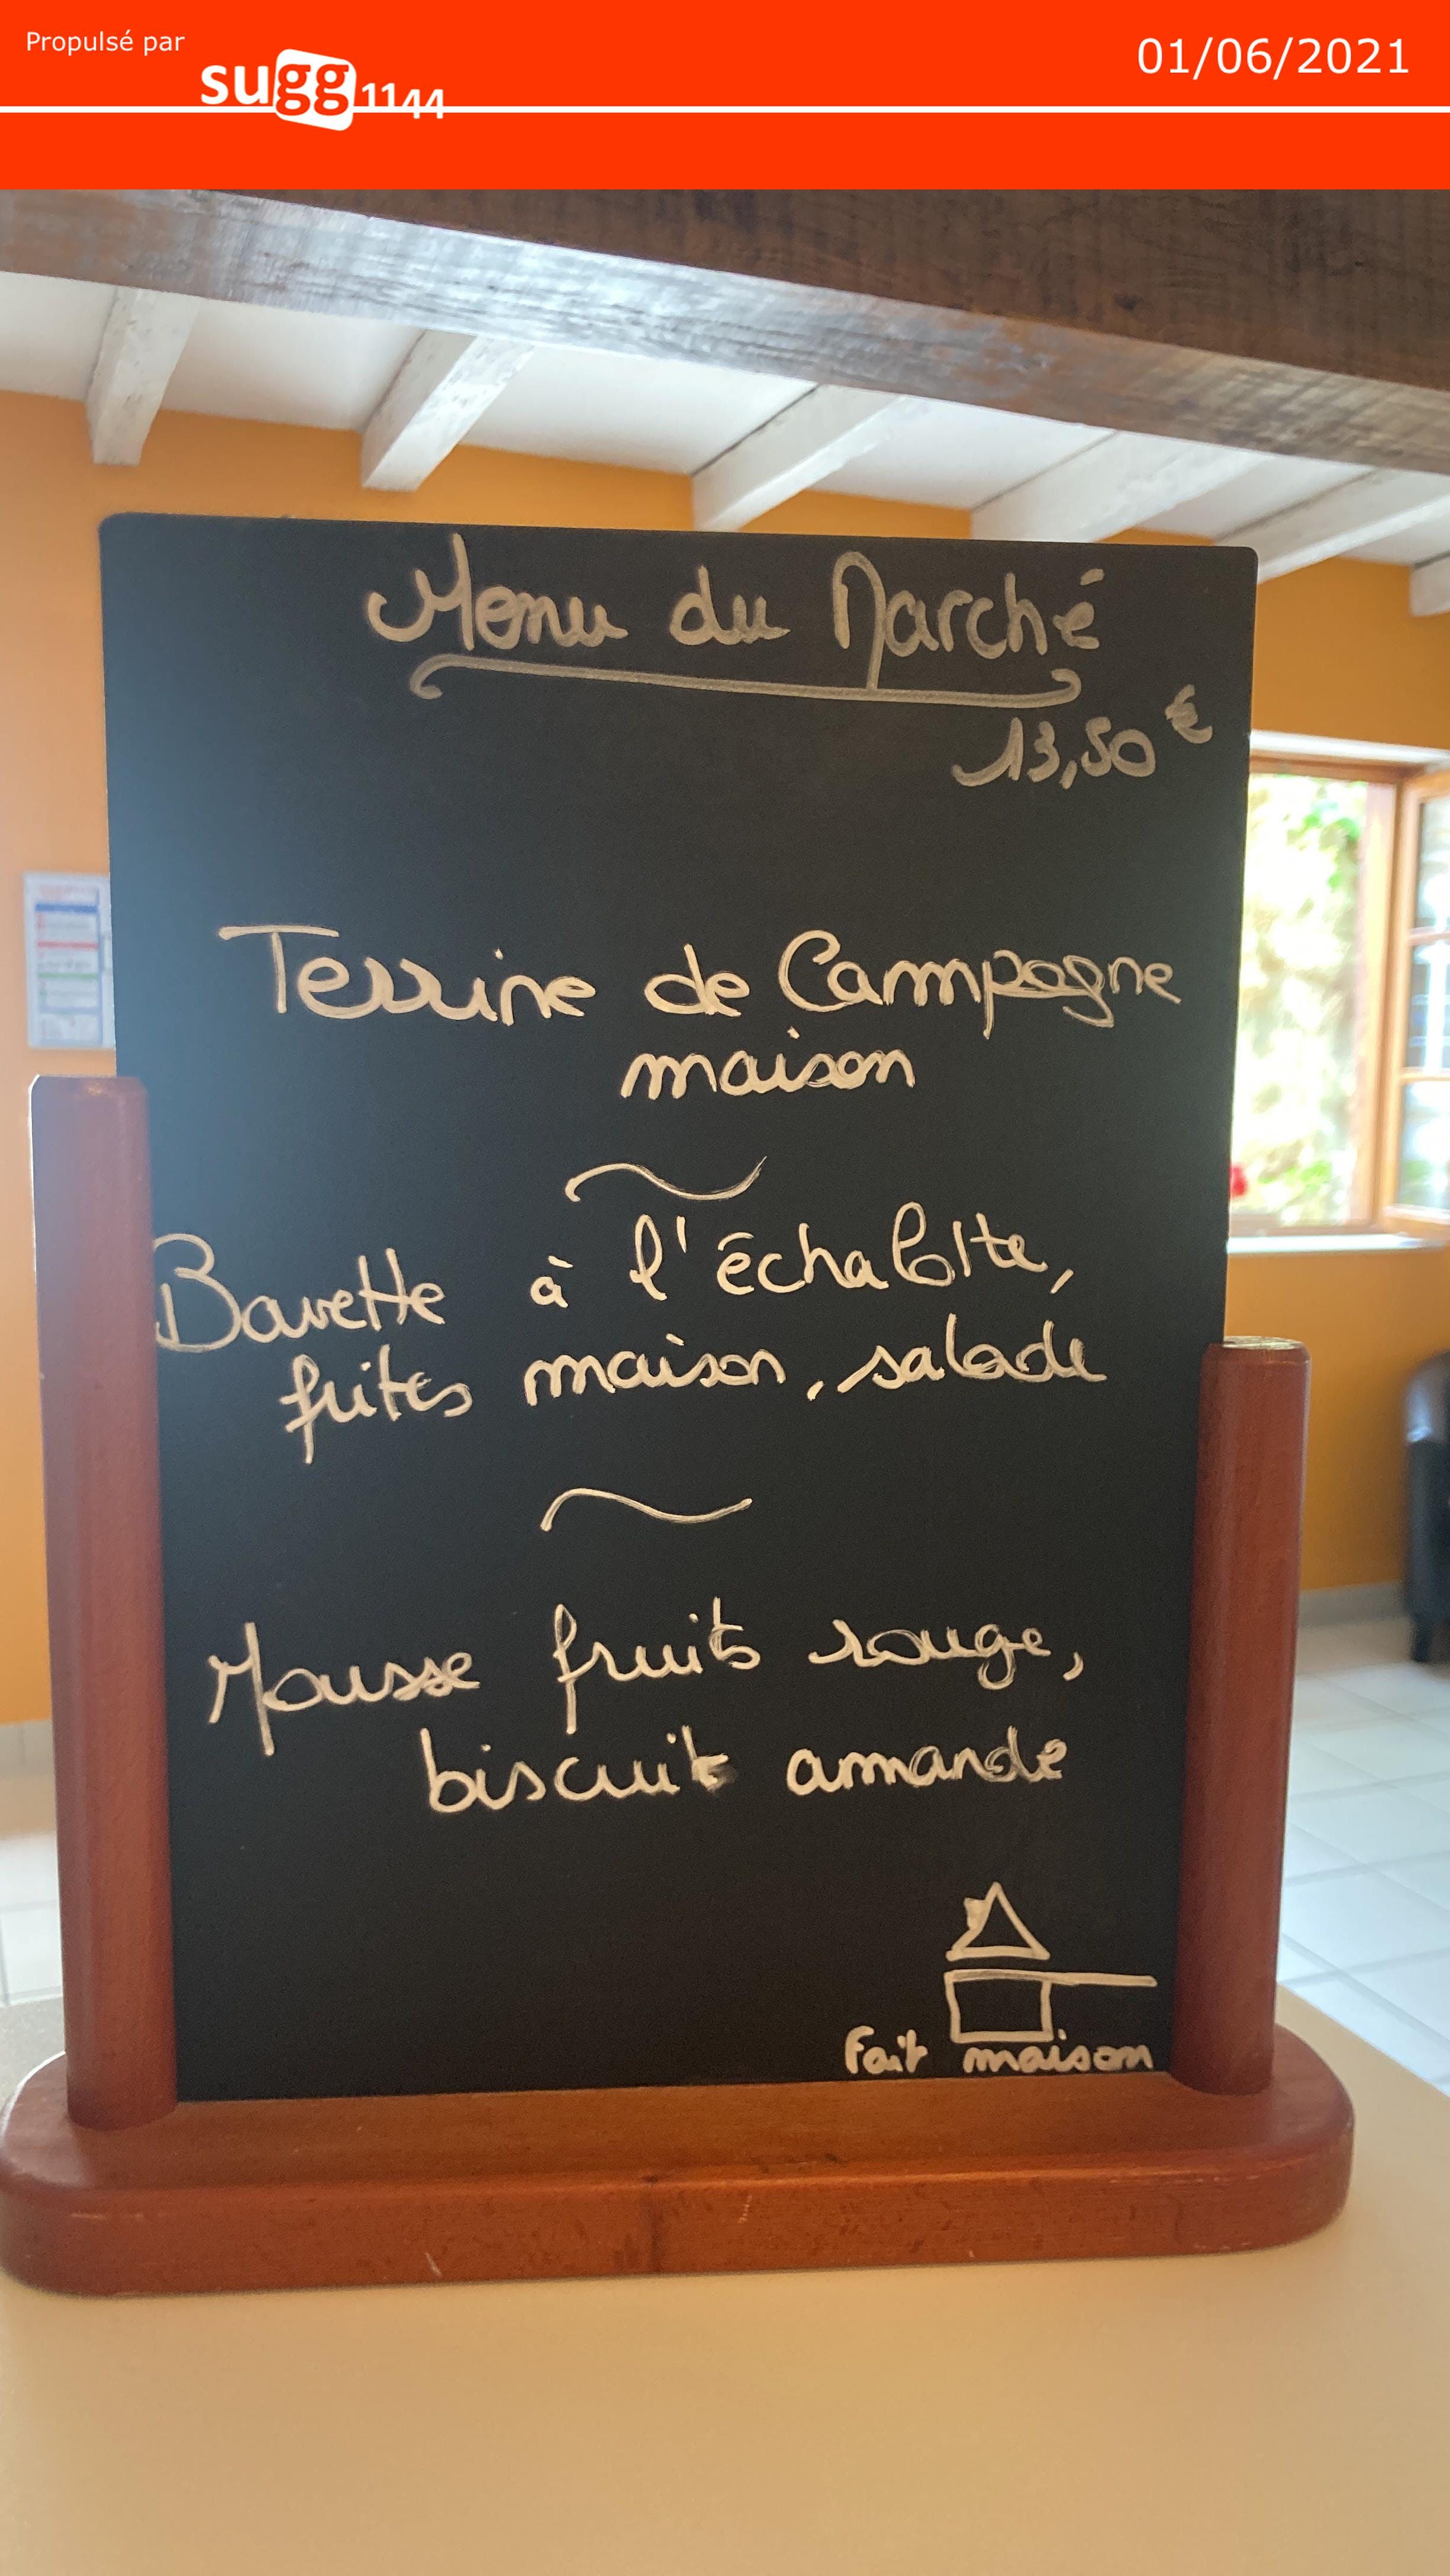 Propulsé par
sugg1144
01/06/2021
Menu du Marché
13,50 €
Terrine de Campagne
maison
Bavette à l'échalote,
frites maison, salade
Mousse fruits rouge,
biscuit amande
Fait maison